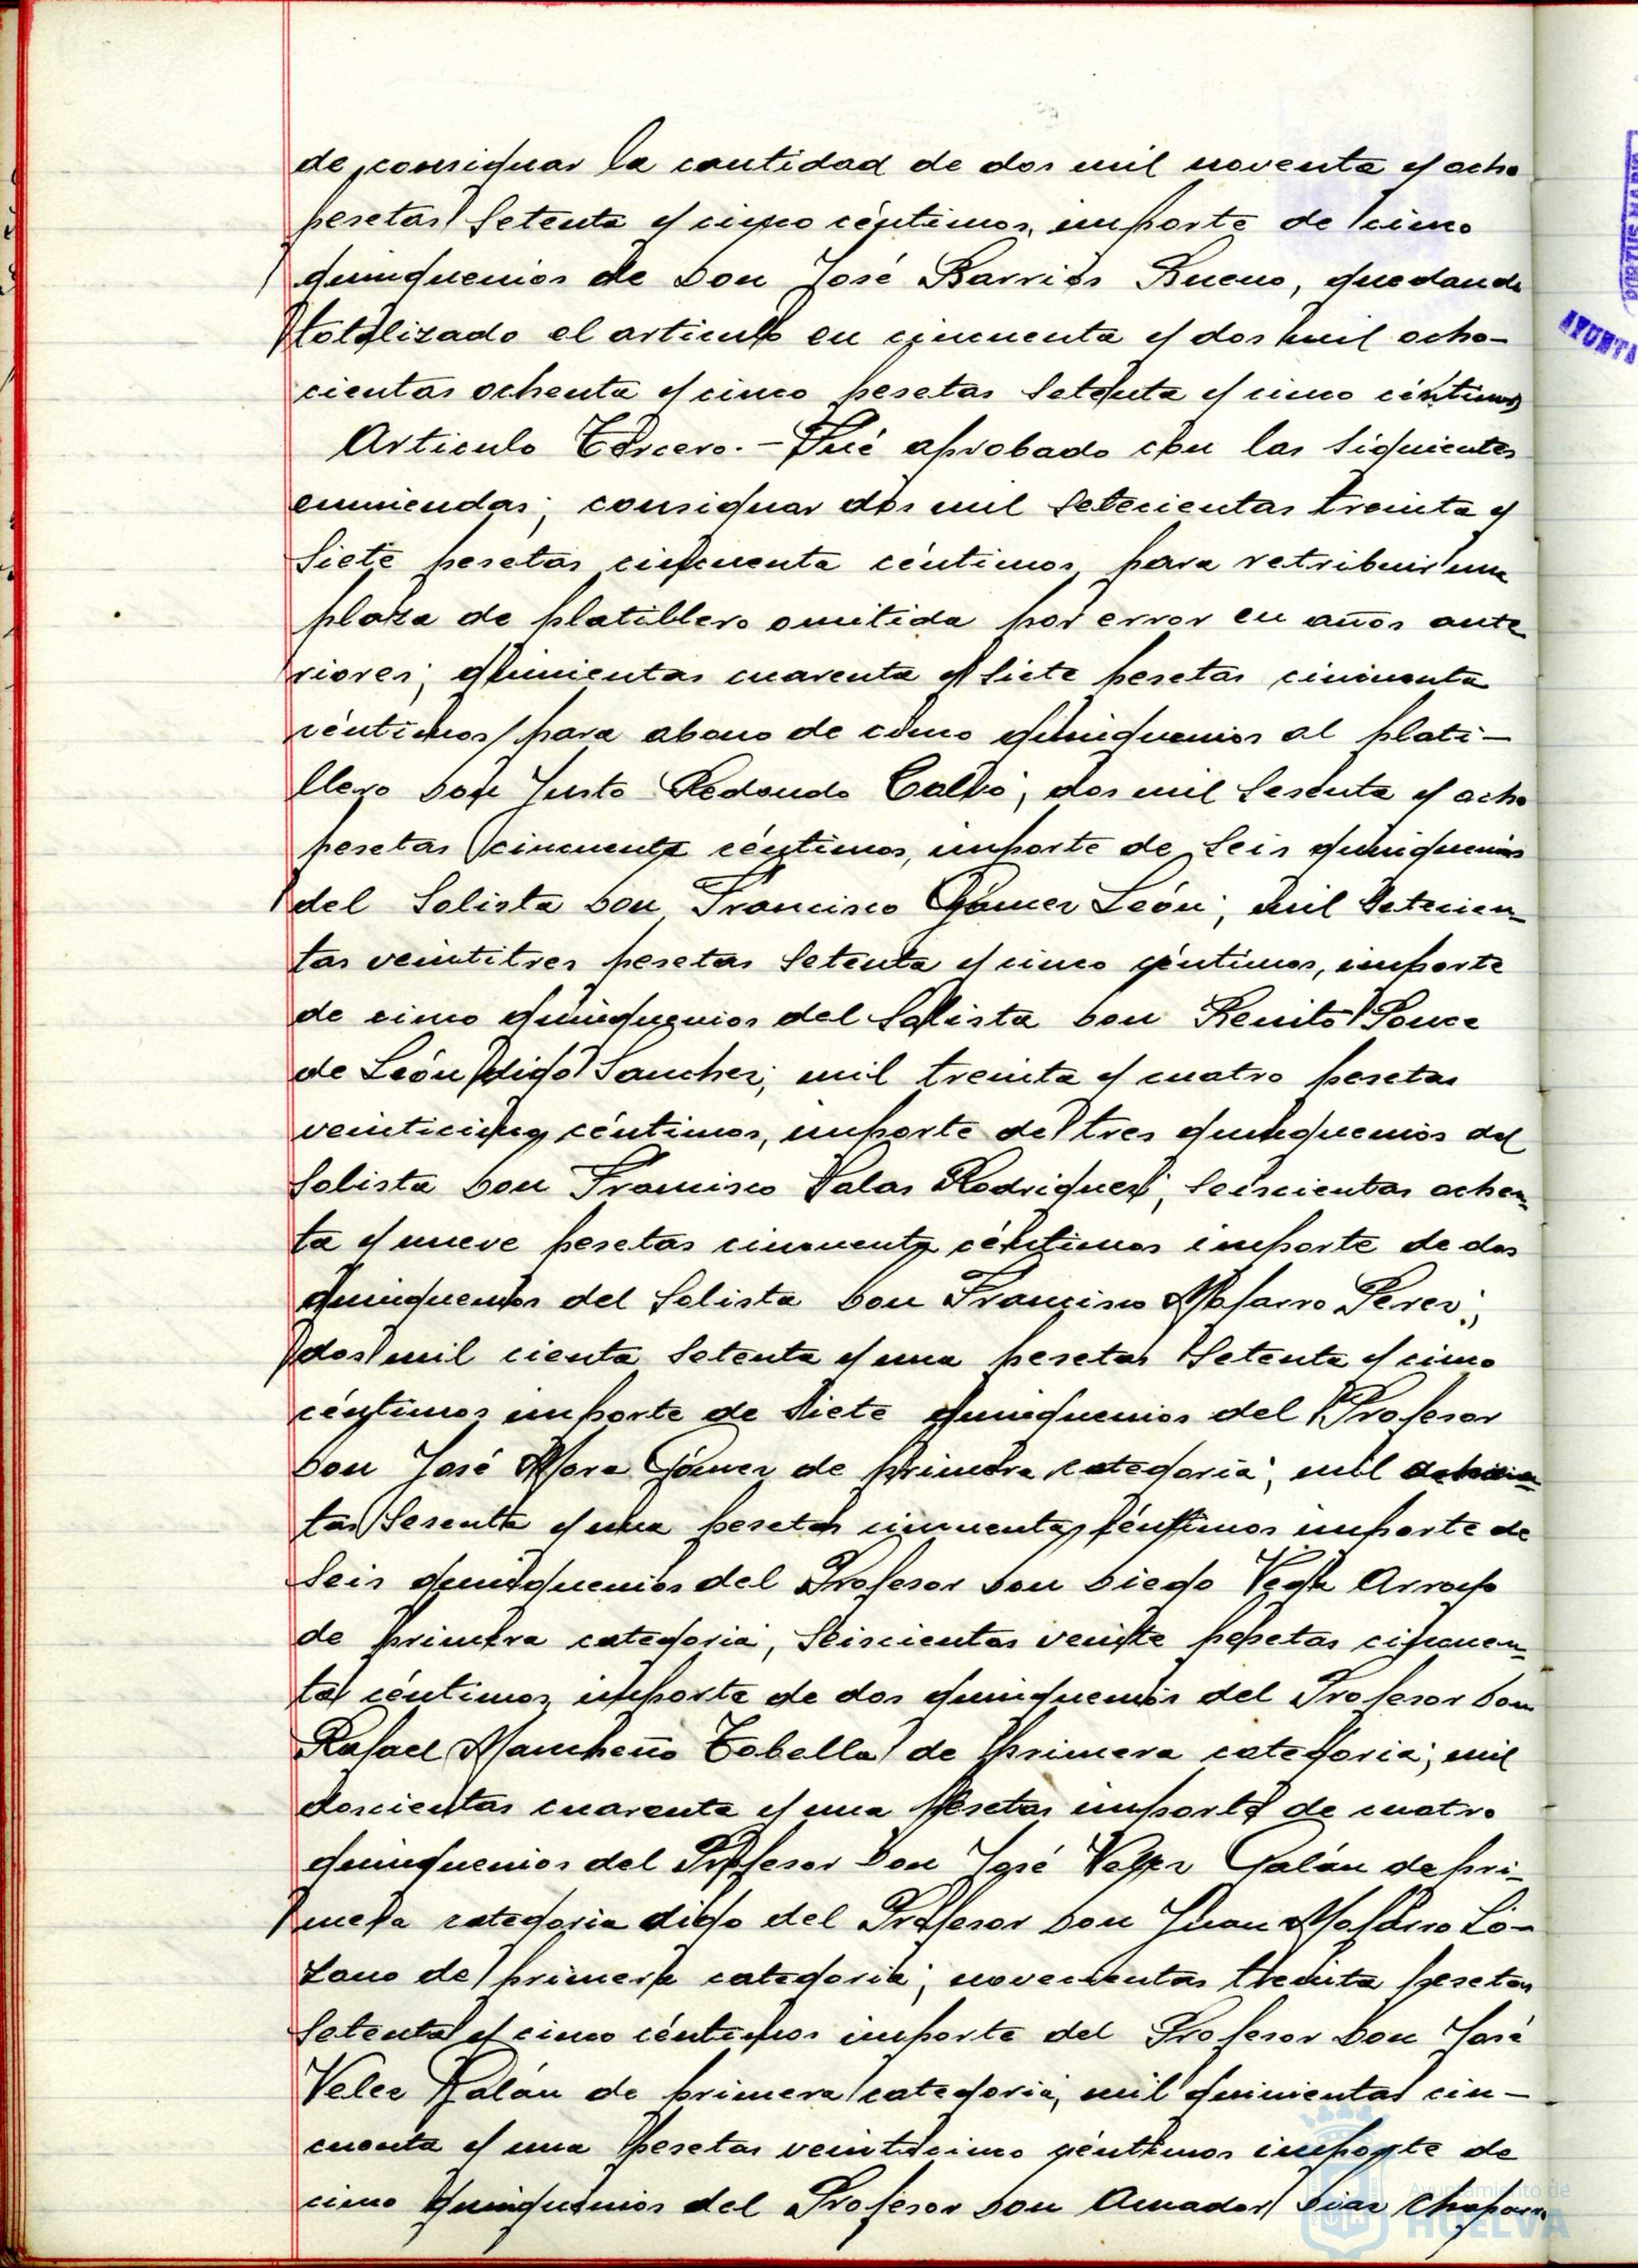 de consignar la cantidad de dos mil noventa y ocho
pesetas setenta y cinco céntimos, importe de cinco
quinquenios de Don José Barrios Bueno, quedando
totalizado el artículo en cincuenta y dos mil ocho-
cientas ochenta y cinco pesetas setenta y cinco céntimos
Artículo Tercero.- Fué aprobado con las siguientes
enmiendas; consignar dos mil setecientas treinta y
siete pesetas cincuenta céntimos, para retribuir una
plaza de platillero omitida por error en años ante
riores; quinientas cuarenta y siete pesetas cincuenta
céntimos para abono de cinco quinquenios al plati-
llero Don Justo Redondo Calbo; dos mil sesenta y ocho
pesetas cincuenta céntimos, importe de seis quinquenios
del Solista Don Francisco Gómez León; mil setecien-
tas veintitres pesetas setenta y cinco céntimos, importe
de cinco quinquenios del Solista Don Benito Ponce
de León digo Sanchez; mil treinta y cuatro pesetas
veinticinco céntimos, importe de tres quinquenios del
Solista Don Francisco Salas Rodriguez; seiscientas ochen-
ta y nueve pesetas cincuenta céntimos importe de dos
quinquenios del Solista Don Francisco Mofarro Perez;
dos mil cienta setenta y una pesetas setenta y cinco
céntimos importe de siete quinquenios del Profesor
Don José Mora Gómez de primera categoria; mil
tas sesenta y una pesetas cincuenta céntimos importe de
seis quinquenios del Profesor Don Diego Vega Arroyo
de primera categoria, seiscientas veinte pesetas cincuen-
ta céntimos, importe de dos quinquenios del Profesor Don
Rafael Mancheño Tobella de primera categoria; mil
doscientas cuarenta y una pesetas importe de cuatro
quinquenios del Profesor Don José Velez Galán de pri-
mera categoria digo del Profesor Don Juan Mofarro Lo-
zano de primera categoria; novecientas treinta pesetas
setenta y cinco céntimos importe del Profesor Don José
Velez Galán de primera categoria, mil quinientas cin-
cuenta y una pesetas veinticinco céntimos importe de
cinco quinquenios del Profesor Don Amador Diaz Chaparro
AYUNTA
Ayuntamiento de
HUELVA